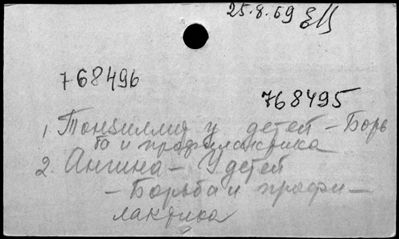 25.8.69
768496
768495
1. Тонзиллия у детей – Борь
ба и профилактика
2. Ангина – У детей
– Борьба и профи–
лактика